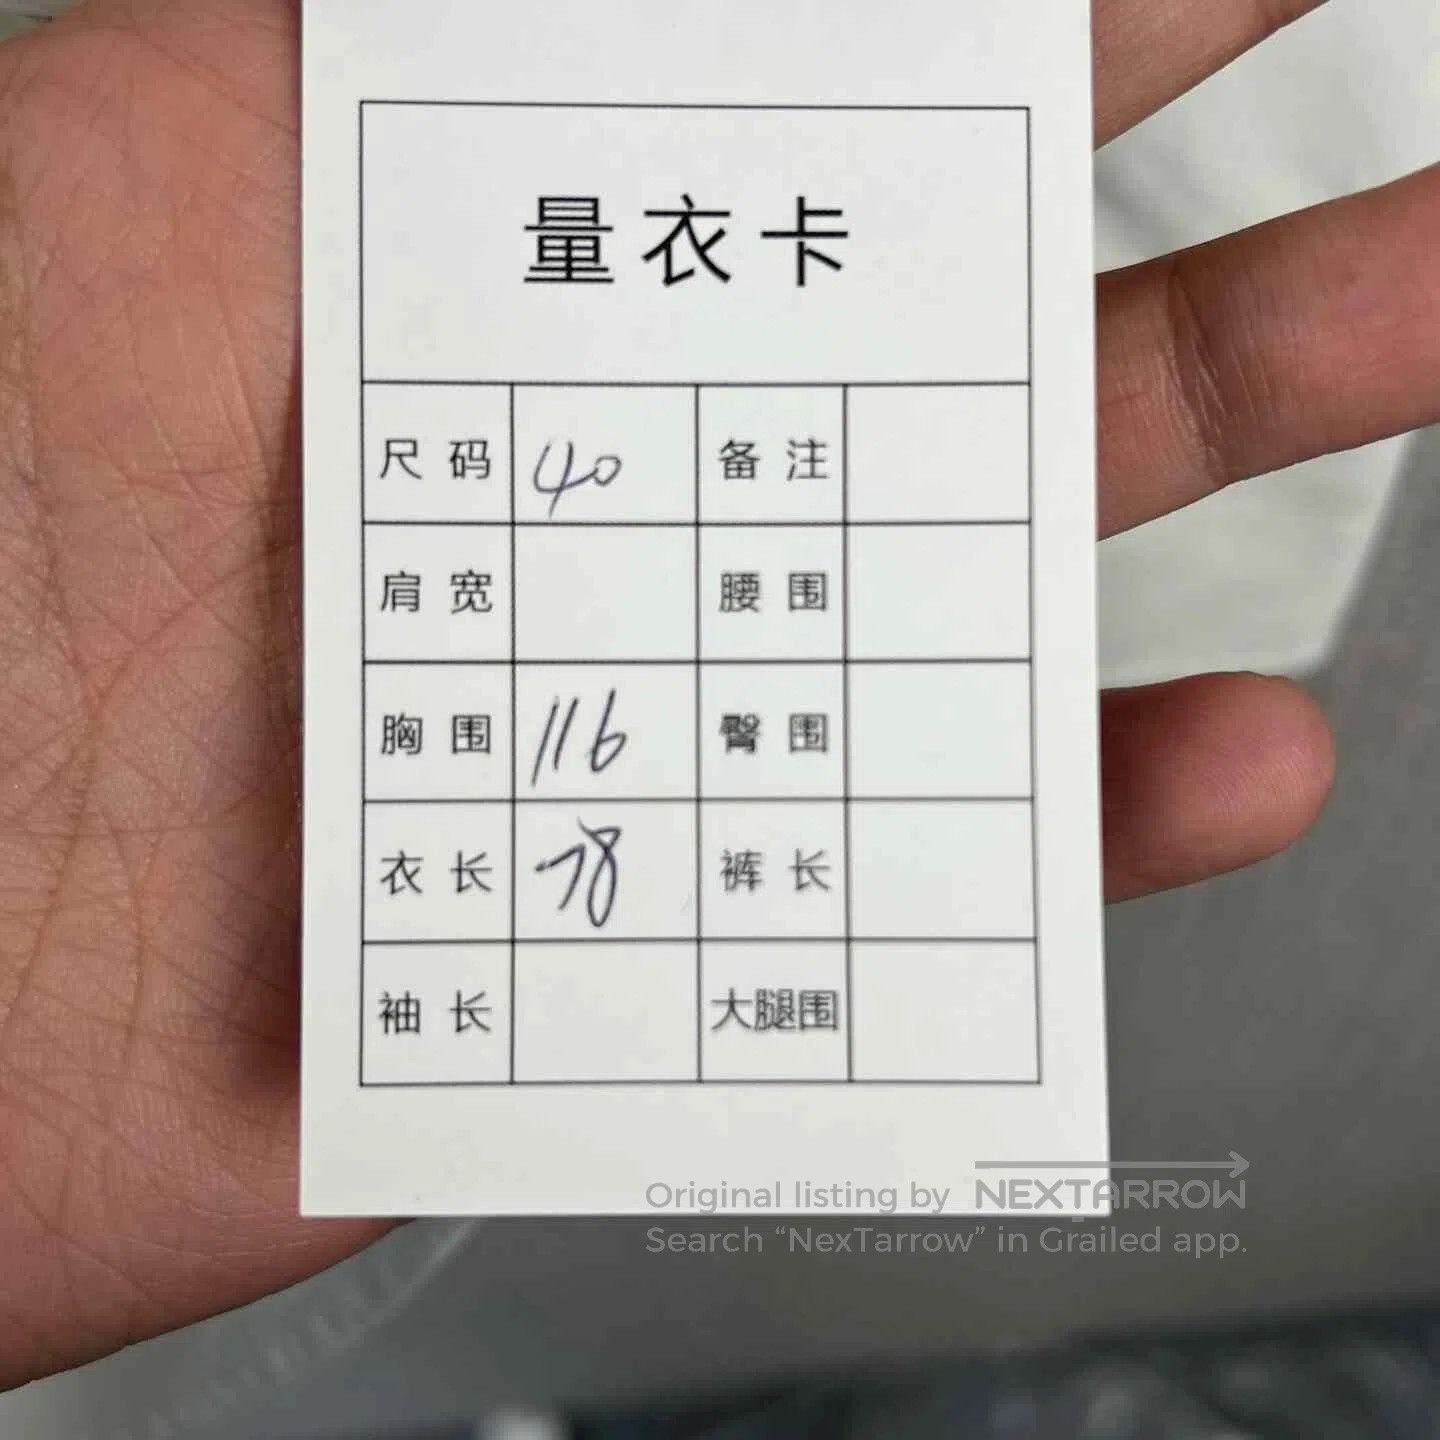 量衣卡
尺码 40 备注
肩宽 腰围
胸围 116 臀围
衣长 78 裤长
袖长 大腿围
Original listing by NEXTARROW
Search “NexTarrow” in Grailed app.